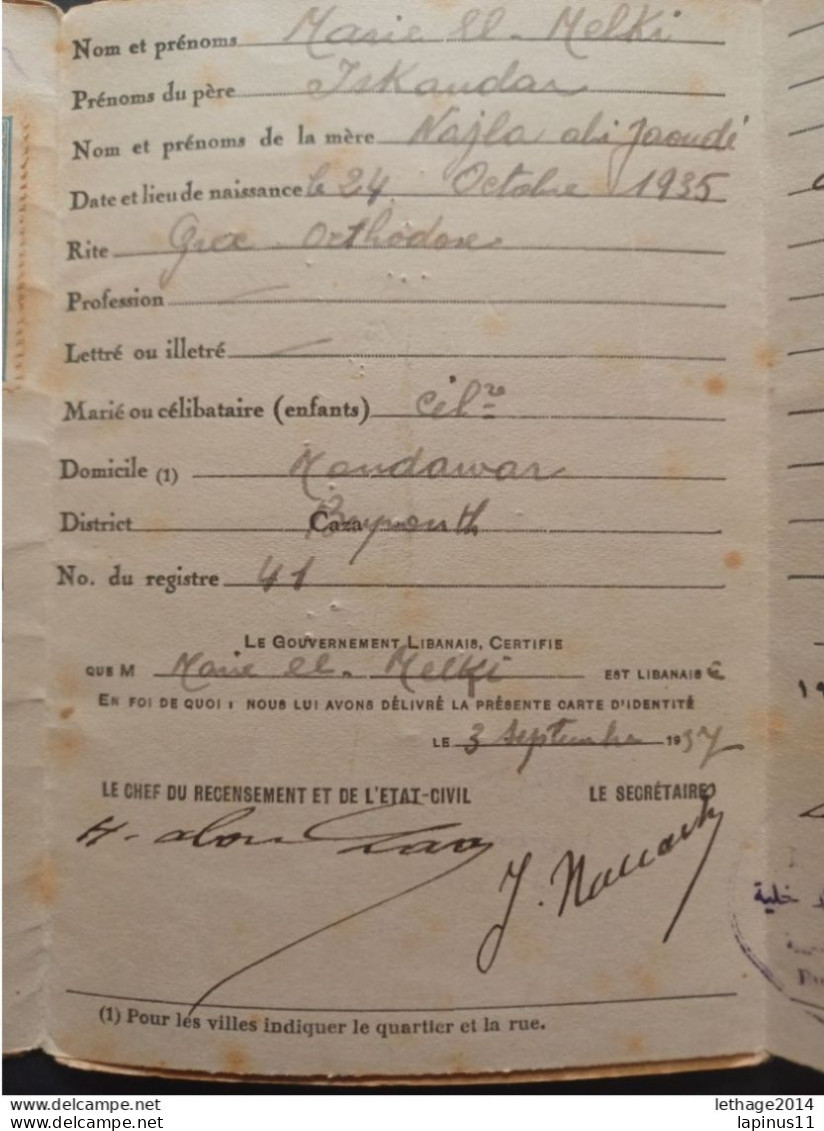 Nom et prénoms Marie El-Melki
Prénoms du père Iskandar
Nom et prénoms de la mère Najla abi Jaoudé
Date et lieu de naissance le 24 Octobre 1935
Rite Grec Orthodoxe
Profession —
Lettré ou illetré —
Marié ou célibataire (enfants) célre
Domicile (1)
District Caza Beyrouth
No. du registre 41
LE GOUVERNEMENT LIBANAIS, CERTIFIE
QUE M Marie el-Melki EST LIBANAISE
EN FOI DE QUOI : NOUS LUI AVONS DÉLIVRÉ LA PRÉSENTE CARTE D'IDENTITÉ
LE 3 Septembre 1937
LE CHEF DU RECENSEMENT ET DE L'ETAT-CIVIL LE SECRÉTAIRE
(1) Pour les villes indiquer le quartier et la rue.
delcampe.net
lethage2014
delcampe.net
lapinus11